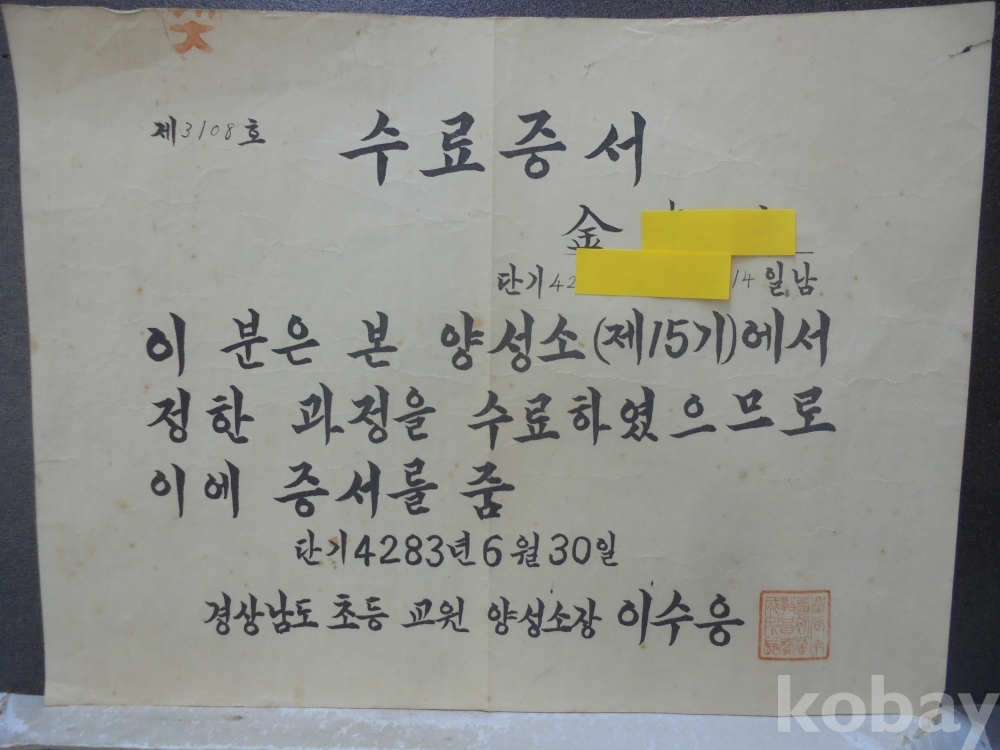 제3108호
수료증서
金
단기42 14일 남
이 분은 본 양성소(제15기)에서
정한 과정을 수료하였으므로
이에 증서를 줌
단기4283년 6월 30일
경상남도 초등 교원 양성소장 이수웅
kobay